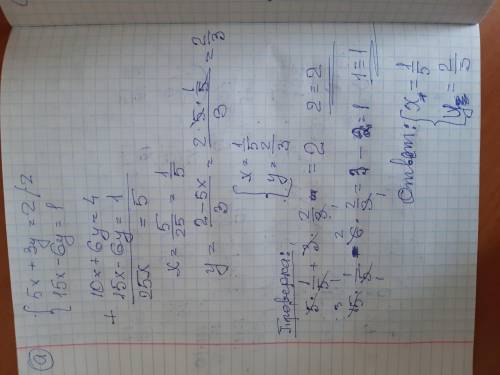 а)
{ 5x + 3y = 2 | 2
{ 15x - 6y = 1
10x + 6y = 4
+ 15x - 6y = 1
25x = 5
x = 5/25 = 1/5
y = (2 - 5x)/3 = (2 - 5 · 1/5)/3 = 2/3
{ x = 1/5
{ y = 2/3
Проверка:
5 · 1/5 + 3 · 2/3 = 2 2 = 2
15 · 1/5 - 6 · 2/3 = 3 - 2 = 1 1 = 1
Ответ: { x = 1/5
{ y = 2/3